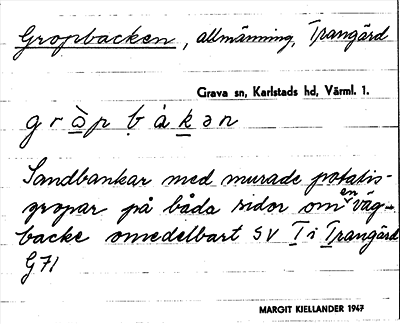 Gropbacken, allmänning, Trangärd
Grava sn, Karlstads hd, Värml. 1.
g r ò p b à k ə n
Sandbankar med murade potatis-
gropar på båda sidor om en väg-
backe omedelbart SV I i Trangärd
G 71
MARGIT KIELLANDER 1947